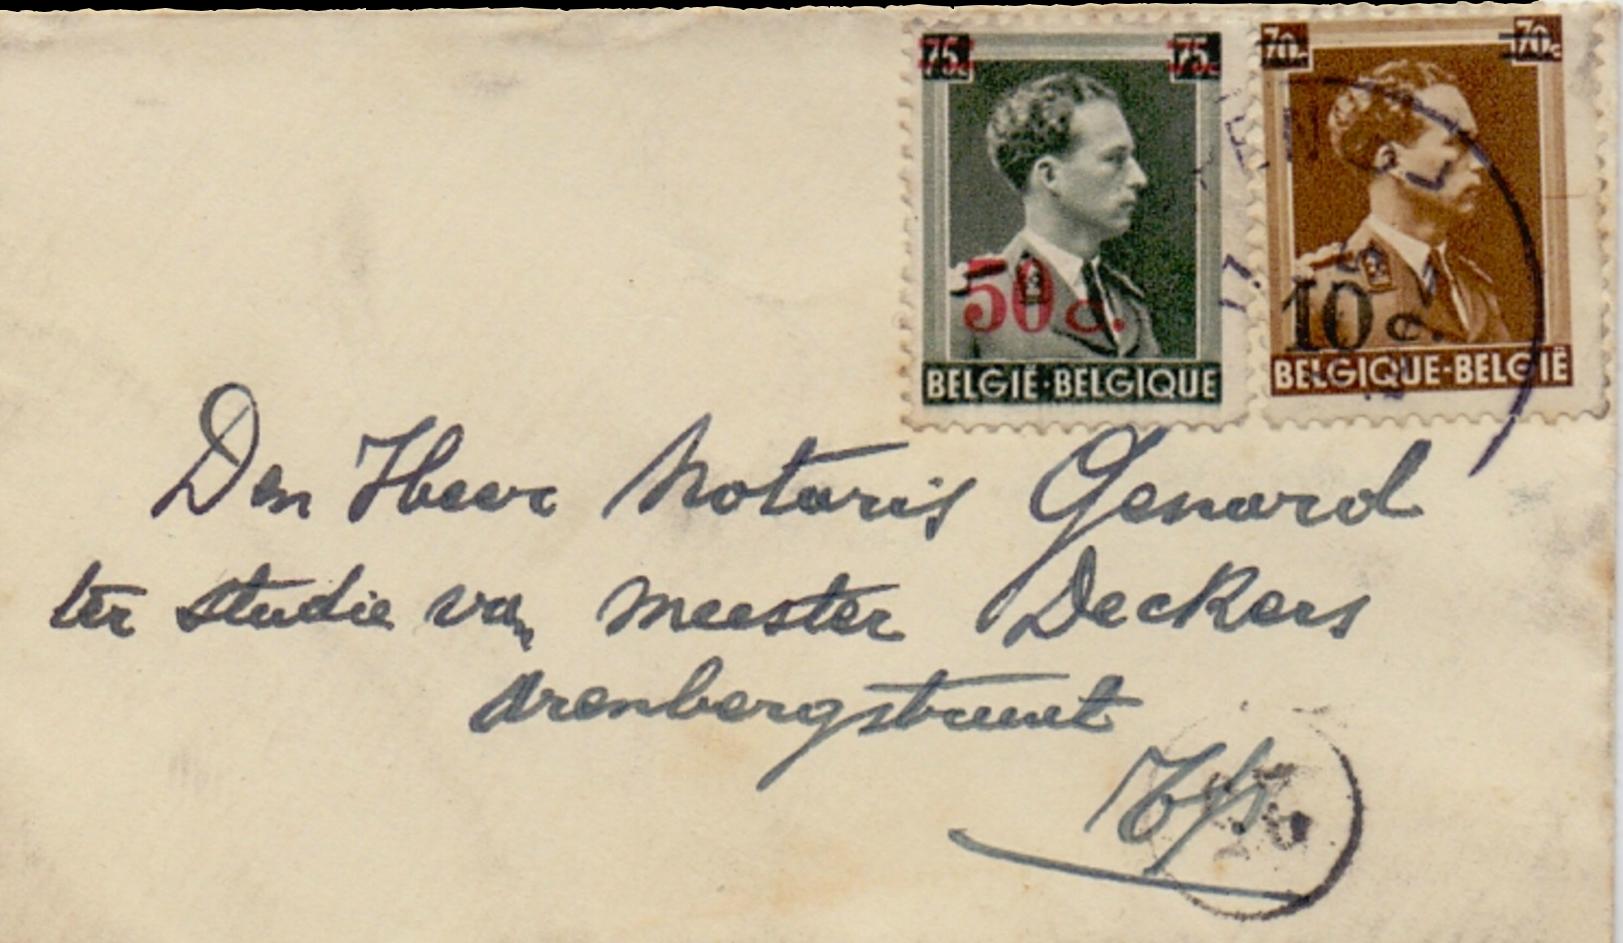 75c 75c
50c.
BELGIË·BELGIQUE
70c 70c
10c.
BELGIQUE-BELGIË
Den Heer Notaris Genard
ter studie van meester Deckers
Arenbergstraat